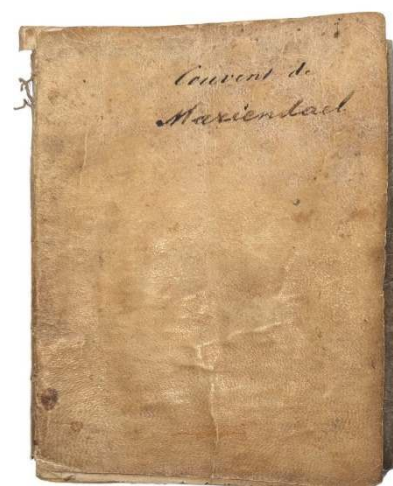 Couvent de
Mariendael